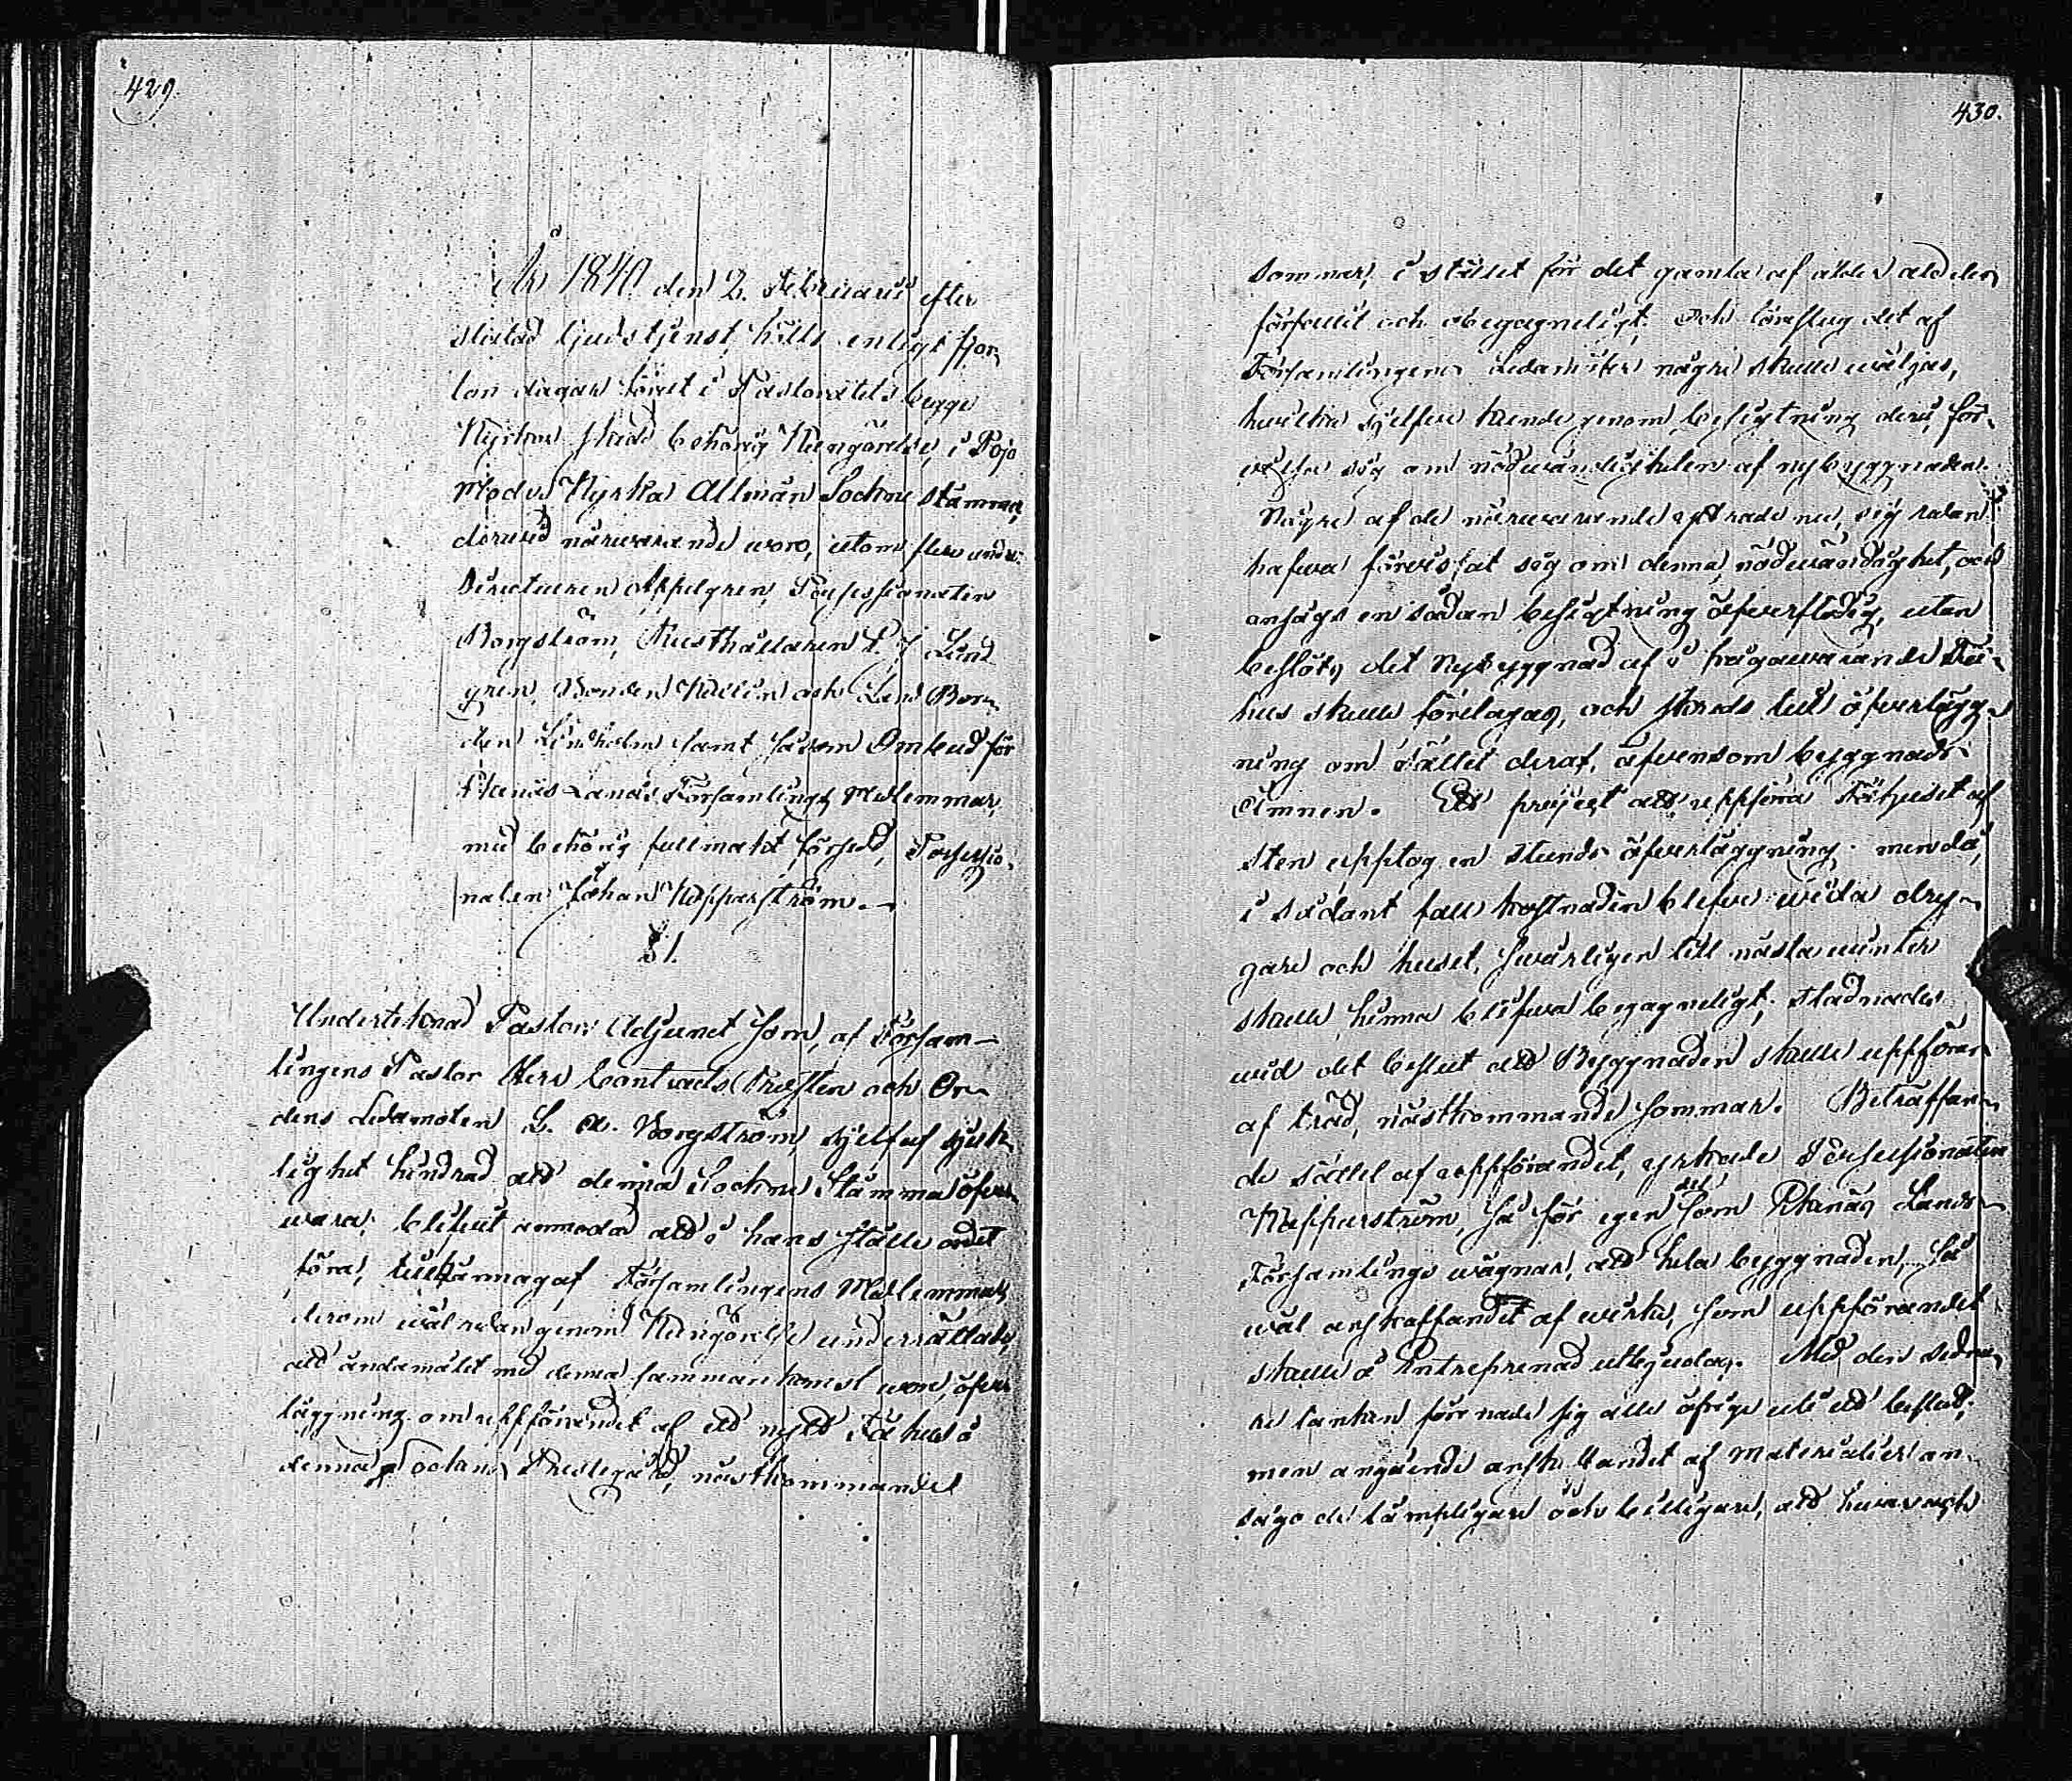 429.
År 1840 den 2. Februarii efter
slutad Gudstjenst hölls enligt fjor-
ton dagar förut i Pastoratets begge
Kyrkor skedd behörig Kungörelse, i Pojo
Moder Kyrka Allmän Sockne stämma,
dervid närwarande woro, utom flere andre:
Directeuren Appelgren, Possessionaten
Borgström, Rusthållaren P. J. Lind
gren, Bonden Wallin och Land Bon-
den Lindholm samt såsom Ombud för
Ekenäs Lands Församlings Medlemmar,
med behörig fullmakt försedd, Possessio-
naten Johan Kopparström.
§ 1.
Undertecknad Pastors Adjunct som, af Försam-
lingens Pastor Herr Contracts Prosten och Or-
dens Ledamoten L. A. Borgström, sjelf af sjuk-
lighet hindrad att denna Sockne Stämma öfver-
wara, blifvit anmodad att i hans ställe ordet
föra, tillkännagaf Församlingens Medlemmar,
derom wäl redan genom Kungörelse underrättade,
att ändamålet med denna sammankomst wore, öfver
läggning om uppförandet af ett nytt Fähus å
denna Sockens Prestegård, nästkommande
430.
sommar, i stället för det gamla af ålder alldeles
förfallit och obegagneligt. Och föreslog det af
Församlingens Ledamöter någre skulle wäljas,
hwilka sjelfve kunde genom besigtning deri, för-
wissa sig om nödwändigheten af nybyggnaden.
Någre af de närwarande yttrade nu, sig redan
hafwa förvissat sig om denna nödwändighet, och
ansågs en sådan besigtning öfwerflödig, utan
beslöts det nybyggnad af i frågawarande Fä-
hus skulle företagas, och skreds till öfwerlägg-
ning om sättet deraf, äfvensom byggnads
ämnen. Ett project att uppföra Fähuset af
sten upptog en stunds öfwerläggning. men då,
i sådant fall kostnaden blefve wida dry-
gare och huset, swårligen till nästa winter
skulle hinna blifwa begagneligt; stadnades
wid det beslut att Byggnaden skulle uppföras
af träd, nästkommande sommar. Beträffan-
de sättet af uppförandet, yrkade Possessionaten
Kopparström, så för egen del som Ekenäs Lands
Församlings wägnar, att hela byggnaden, så
wäl anskaffandet af wirke, som uppförandet
skulle å Entreprenad utbjudas. Med den sedna-
re tanken förenade sig alle öfrige uti ett beslut,
men angående anskaffandet af materialier an-
sågo de lämpligare och billigare, att hwar och